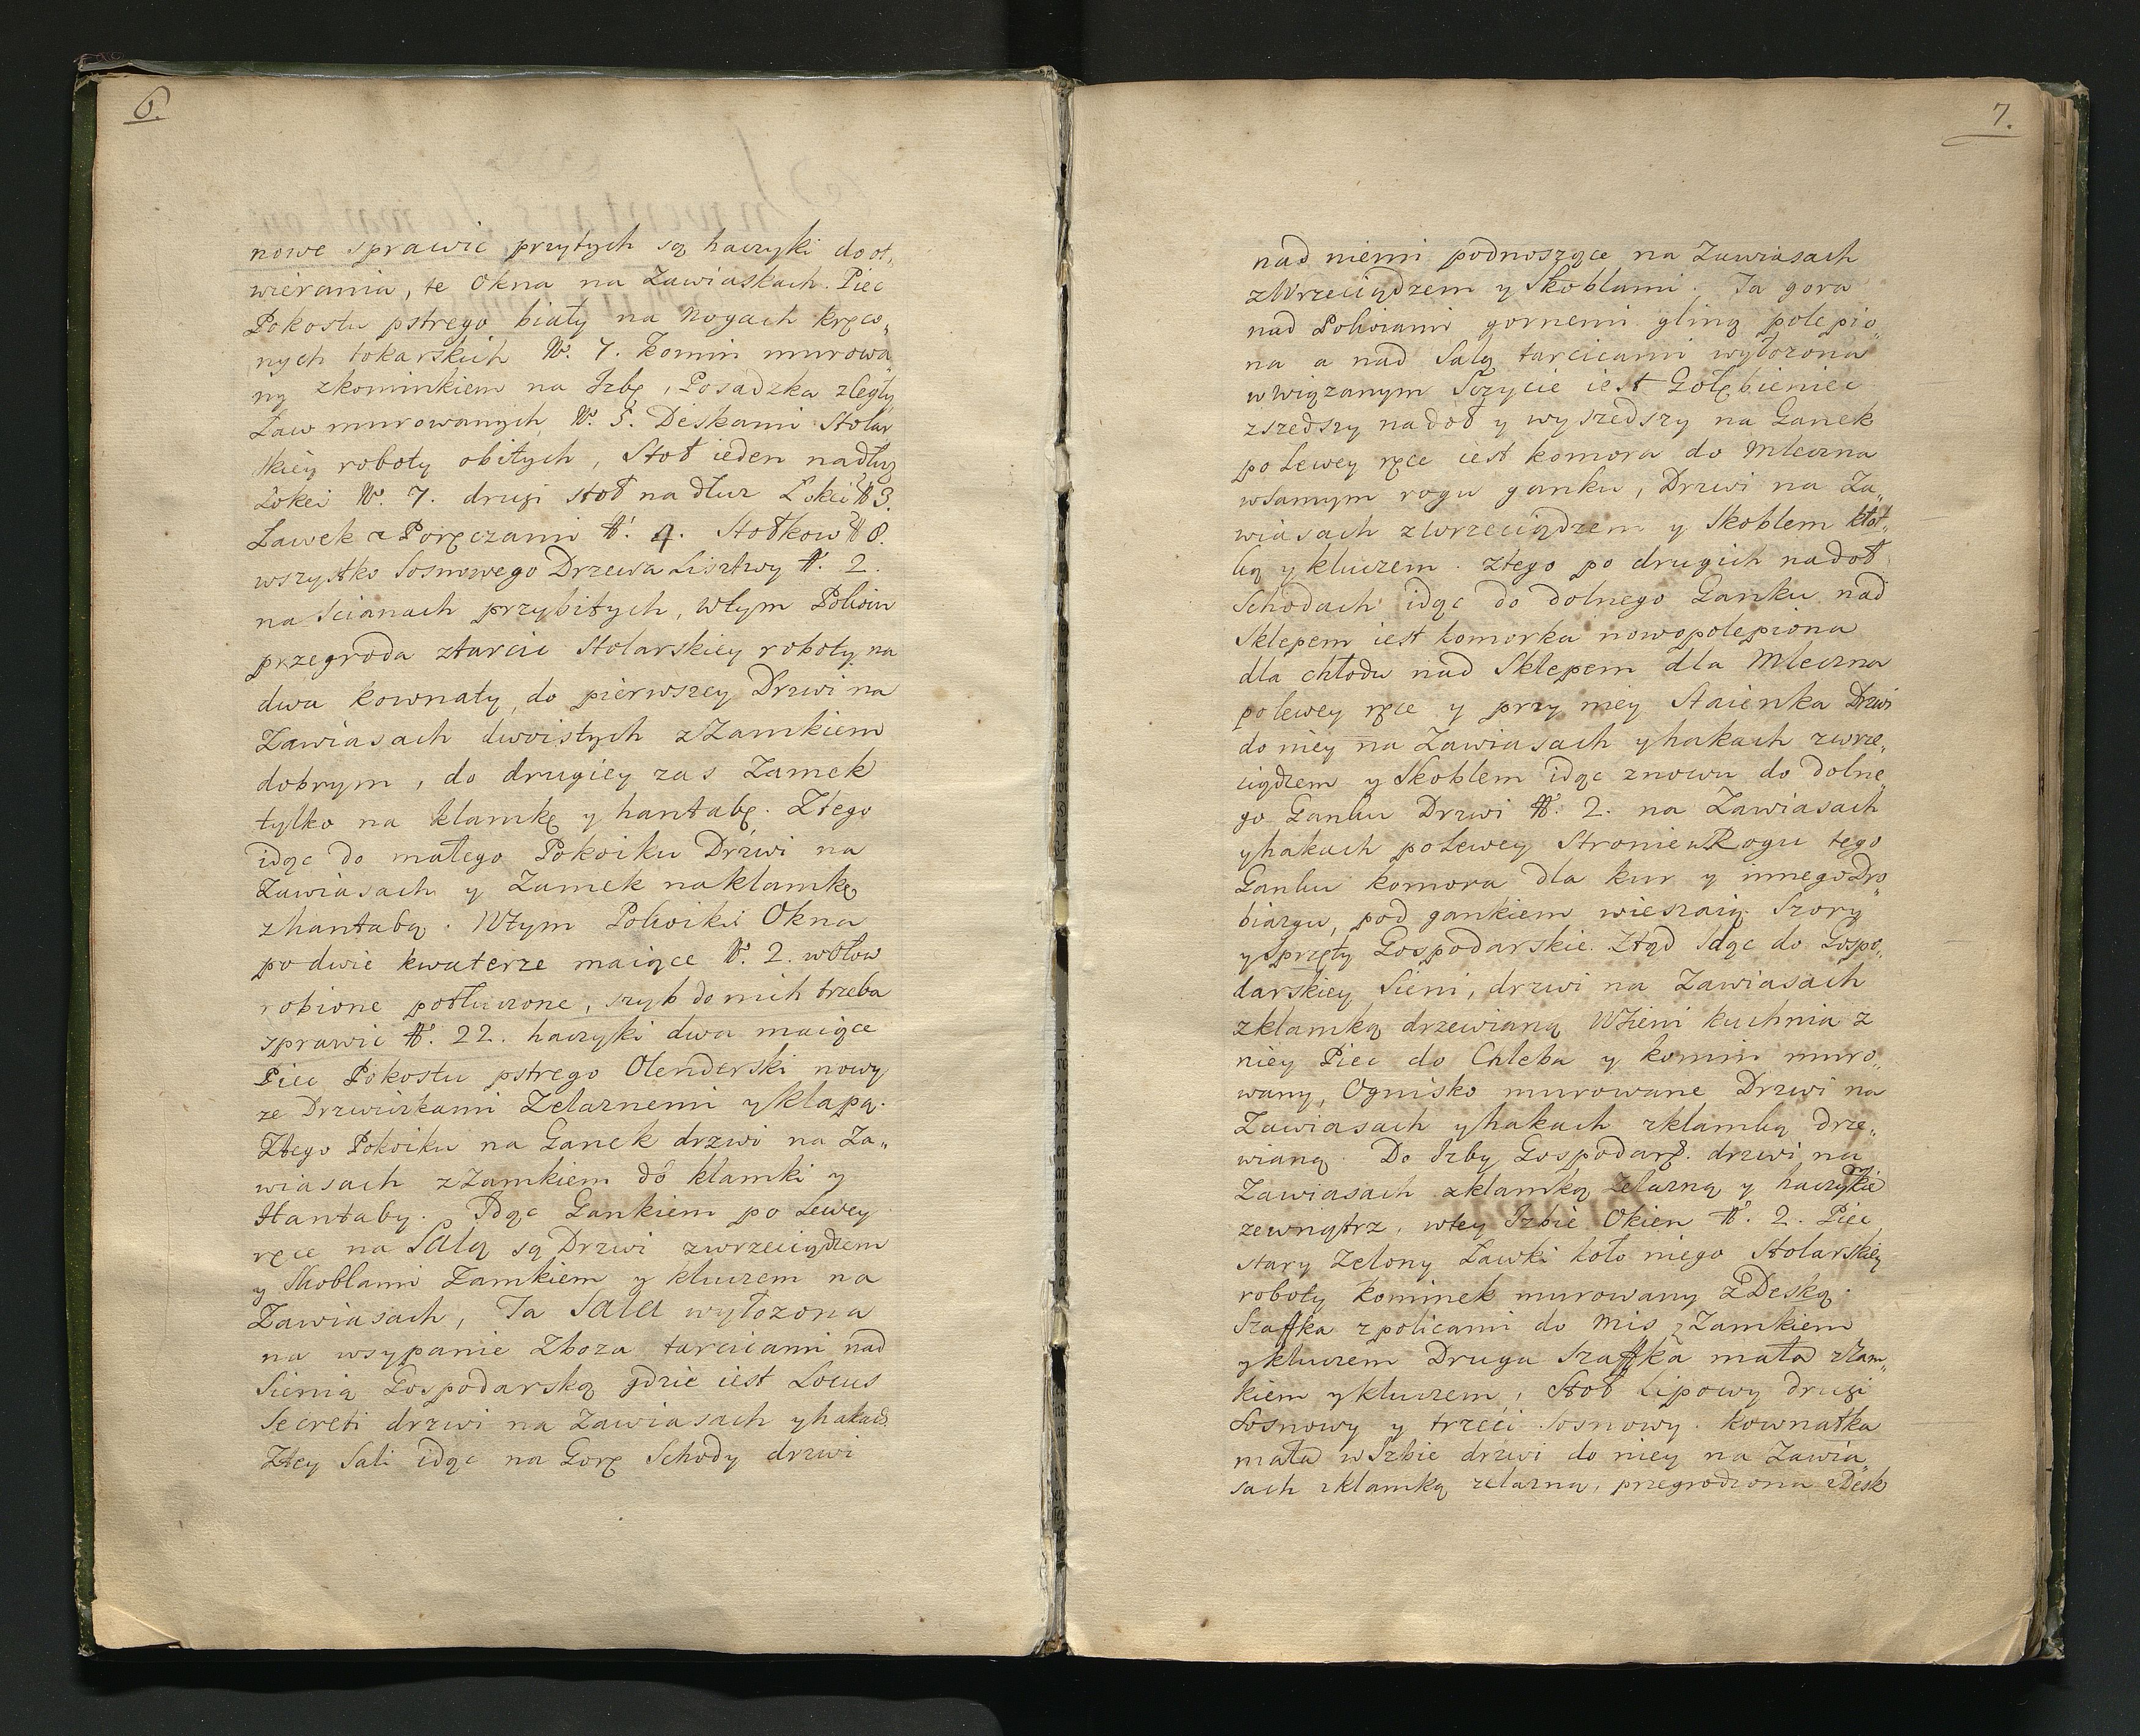 6.
nowe sprawic przytych są haczyki doot„
wierania, te Okna na Zawiaskach. Piec
Pokostu pstrego biały na Nogach kręco„
nych tokarskich N. 7. Komin murowa„
ny zkominkiem na Izbę, Posadzka zCegły
Ław murowanych N. 5. Deskami Stolar
skiey roboty obitych, Stoł ieden nadłuz
Łokci N. 7. drugi stoł na dłuz Łokci N 3.
Ławek z Poręczami N. 4. Stołkow N 8.
wszystko Sosnowego Drzewa Lisztwy N. 2.
na Scianach przybitych, wtym Pokoiu
przegroda ztarcic Stolarskiey roboty na
dwa kownaty, do pierwszey Drzwi na
Zawiasach dwoistych zZamkiem
dobrym, do drugiey zas Zamek
tylko na klamkę y hantabę. Ztego
idąc do małego Pokoiku Drzwi na
Zawiasach y Zamek naklamkę
zhantabą. Wtym Pokoiku Okna
po dwie kwaterze maiące N. 2. wołow
robione potłuczone, szyb do nich trzeba
sprawic N. 22. haczyki dwa maiące
Piec Pokostu pstrego Olenderski nowy
ze Drzwiczkami Zelaznemi y klapą.
Ztego Pokoiku na Ganek drzwi na Za„
wiasach zZamkiem do klamki y
Hantaby. Idąc Gankiem po Lewey
ręce na Salą są Drzwi zwrzeciądzem
y Skoblami Zamkiem y kluczem na
Zawiasach, Ta Sala wyłozona
na wsypanie Zboza tarcicami nad
Sienią Gospodarską gdzie iest Locus
Secreti drzwi na Zawiasach y hakach
Ztey Sali idąc na Gorę Schody drzwi
7.
nad niemi podnoszące na Zawiasach
zWrzeciądzem y Skoblami. Ta gora
nad Pokoiami gornemi gliną polepio„
na a nad Salą tarcicami wyłozona
wwiązanym Sczycie iest Gołębieniec
zszedszy nadoł y wyszedszy na Ganek
po Lewey ręce iest komora do Mleczna
wsamym rogu ganku, Drzwi na Za„
wiasach zwrzeciądzem y Skoblem kłot„
ką y kluczem. Ztego po drugich nadoł
Schodach idąc do dolnego Ganku nad
Sklepem iest komorka nowopolepiona
dla chłodu nad Sklepem dla Mleczna
polewey ręce y przy niey Staienka Drzwi
do niey na Zawiasach y hakach zwrze„
ciądzem y Skoblem idąc znowu do dolne„
go Ganku Drzwi N. 2. na Zawiasach
yhakach poLewey Stronie wRogu tego
Ganku komora dla kur y innego Dro„
biazgu, pod gankiem wieszaią Szory
y Sprzęty Gospodarskie. Ztąd Idąc do Gospo„
darskiey Sieni, drzwi na Zawiasach
zklamką drzewianą WSieni kuchnia z
niey Piec do Chleba y komin muro„
wany, Ognisko murowane Drzwi na
Zawiasach yhakach zklamką drze„
wianą. Do Izby Gospodars. drzwi na
Zawiasach zklamką zelazną y haczykie
zewnątrz, wtey Izbie Okien N. 2. Piec
stary Zelony Ławki koło niego Stolarskiey
roboty kominek murowany zDeską.
Szaffka zpolicami do Mis zZamkiem
ykluczem Druga Szaffka mała zZam„
kiem ykluczem, Stoł Lipowy drugi
Sosnowy y trzeci sosnowy. kownatka
mała wIzbie drzwi do niey na Zawia„
sach zklamką zelazną, przegrodzona zDesk